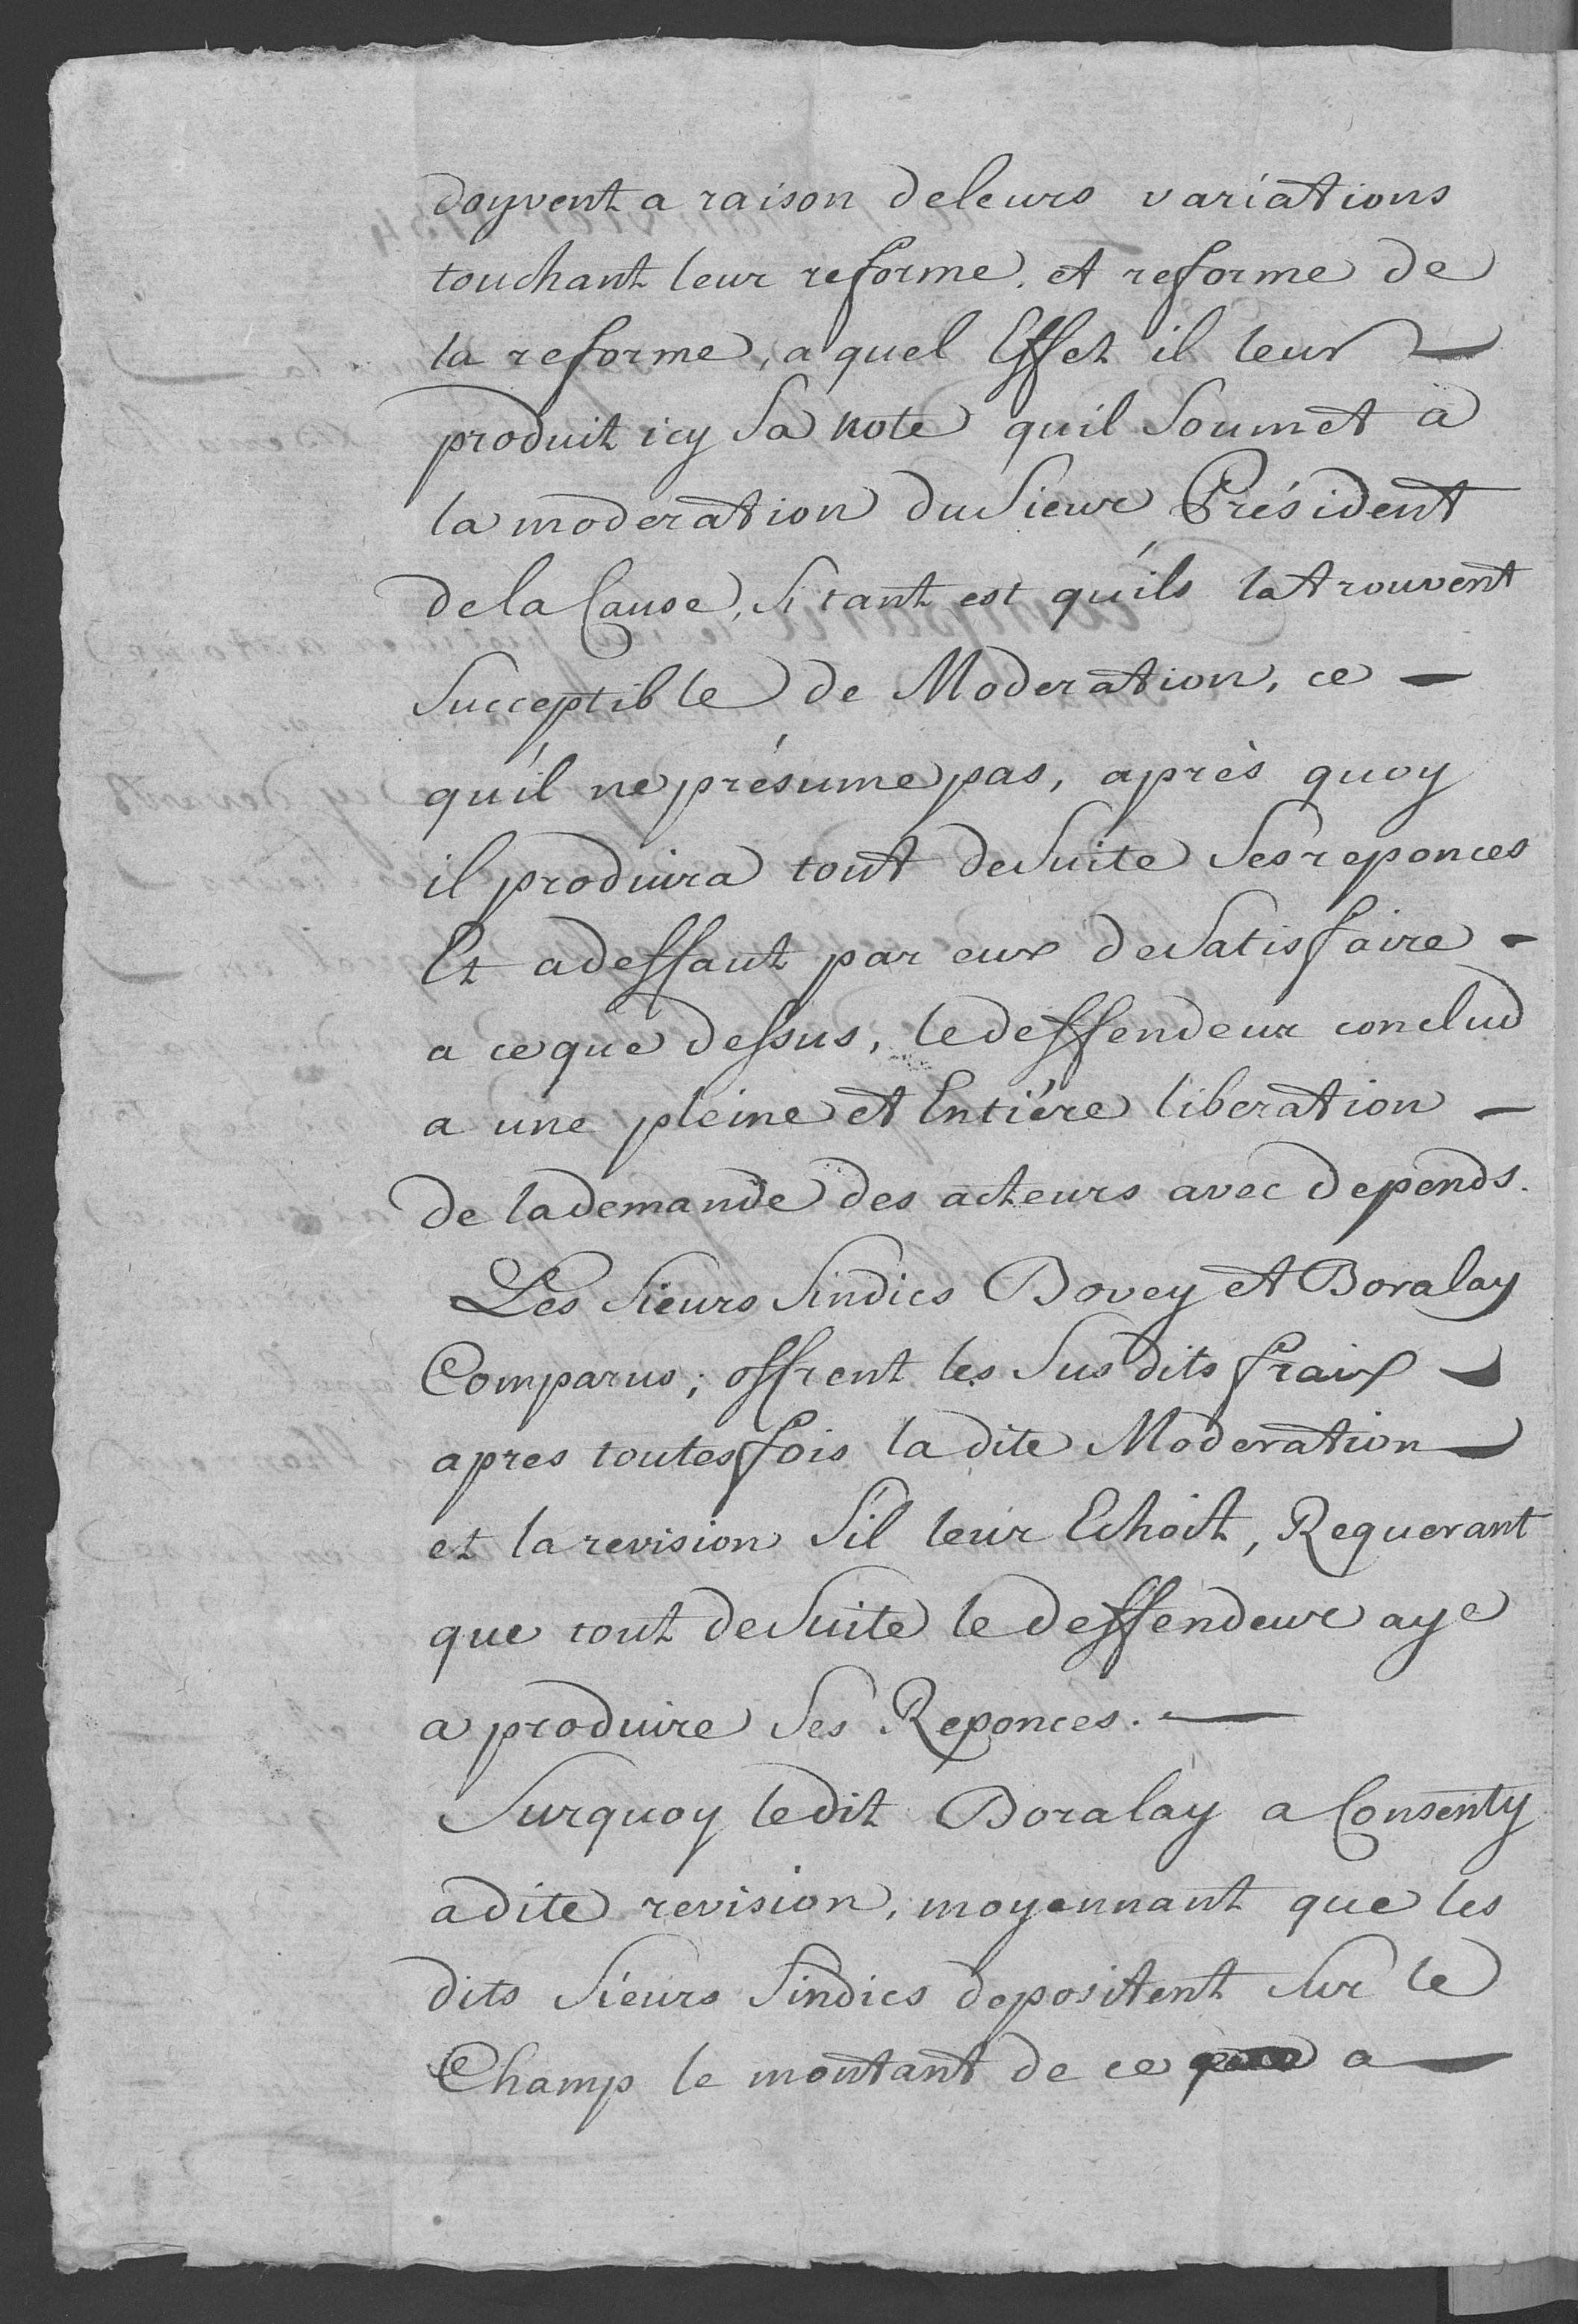 doyvent a raison de leurs variations
touchant leur reforme, et reforme de
la reforme, a quel Effet il leur
produit icy sa note qu'il soumet a
la moderation du sieur Président
de la Cause, si tant est qu'ils la trouvent
succeptible de Moderation, ce
qu'il ne présume pas, après quoy
il produira tout de suite ses reponces
Et a deffaut par eux de satisfaire
a ce que dessus, le deffendeur conclud
a une pleine et Entiére liberation
de la demande des acteurs avec depends.
Les sieurs sindics Bovey et Boralay
Comparus; offrent les susdits fraix
apres toutesfois la dite Moderation
et la revision s'il leur Echoit, Requerant
que tout de suite le deffendeur aye
a produire ses Reponces.
Surquoy ledit Boralay a Consenty
a dite revision, moyennant que les
dits sieurs sindics depositent sur le
Champ le montant de ce a